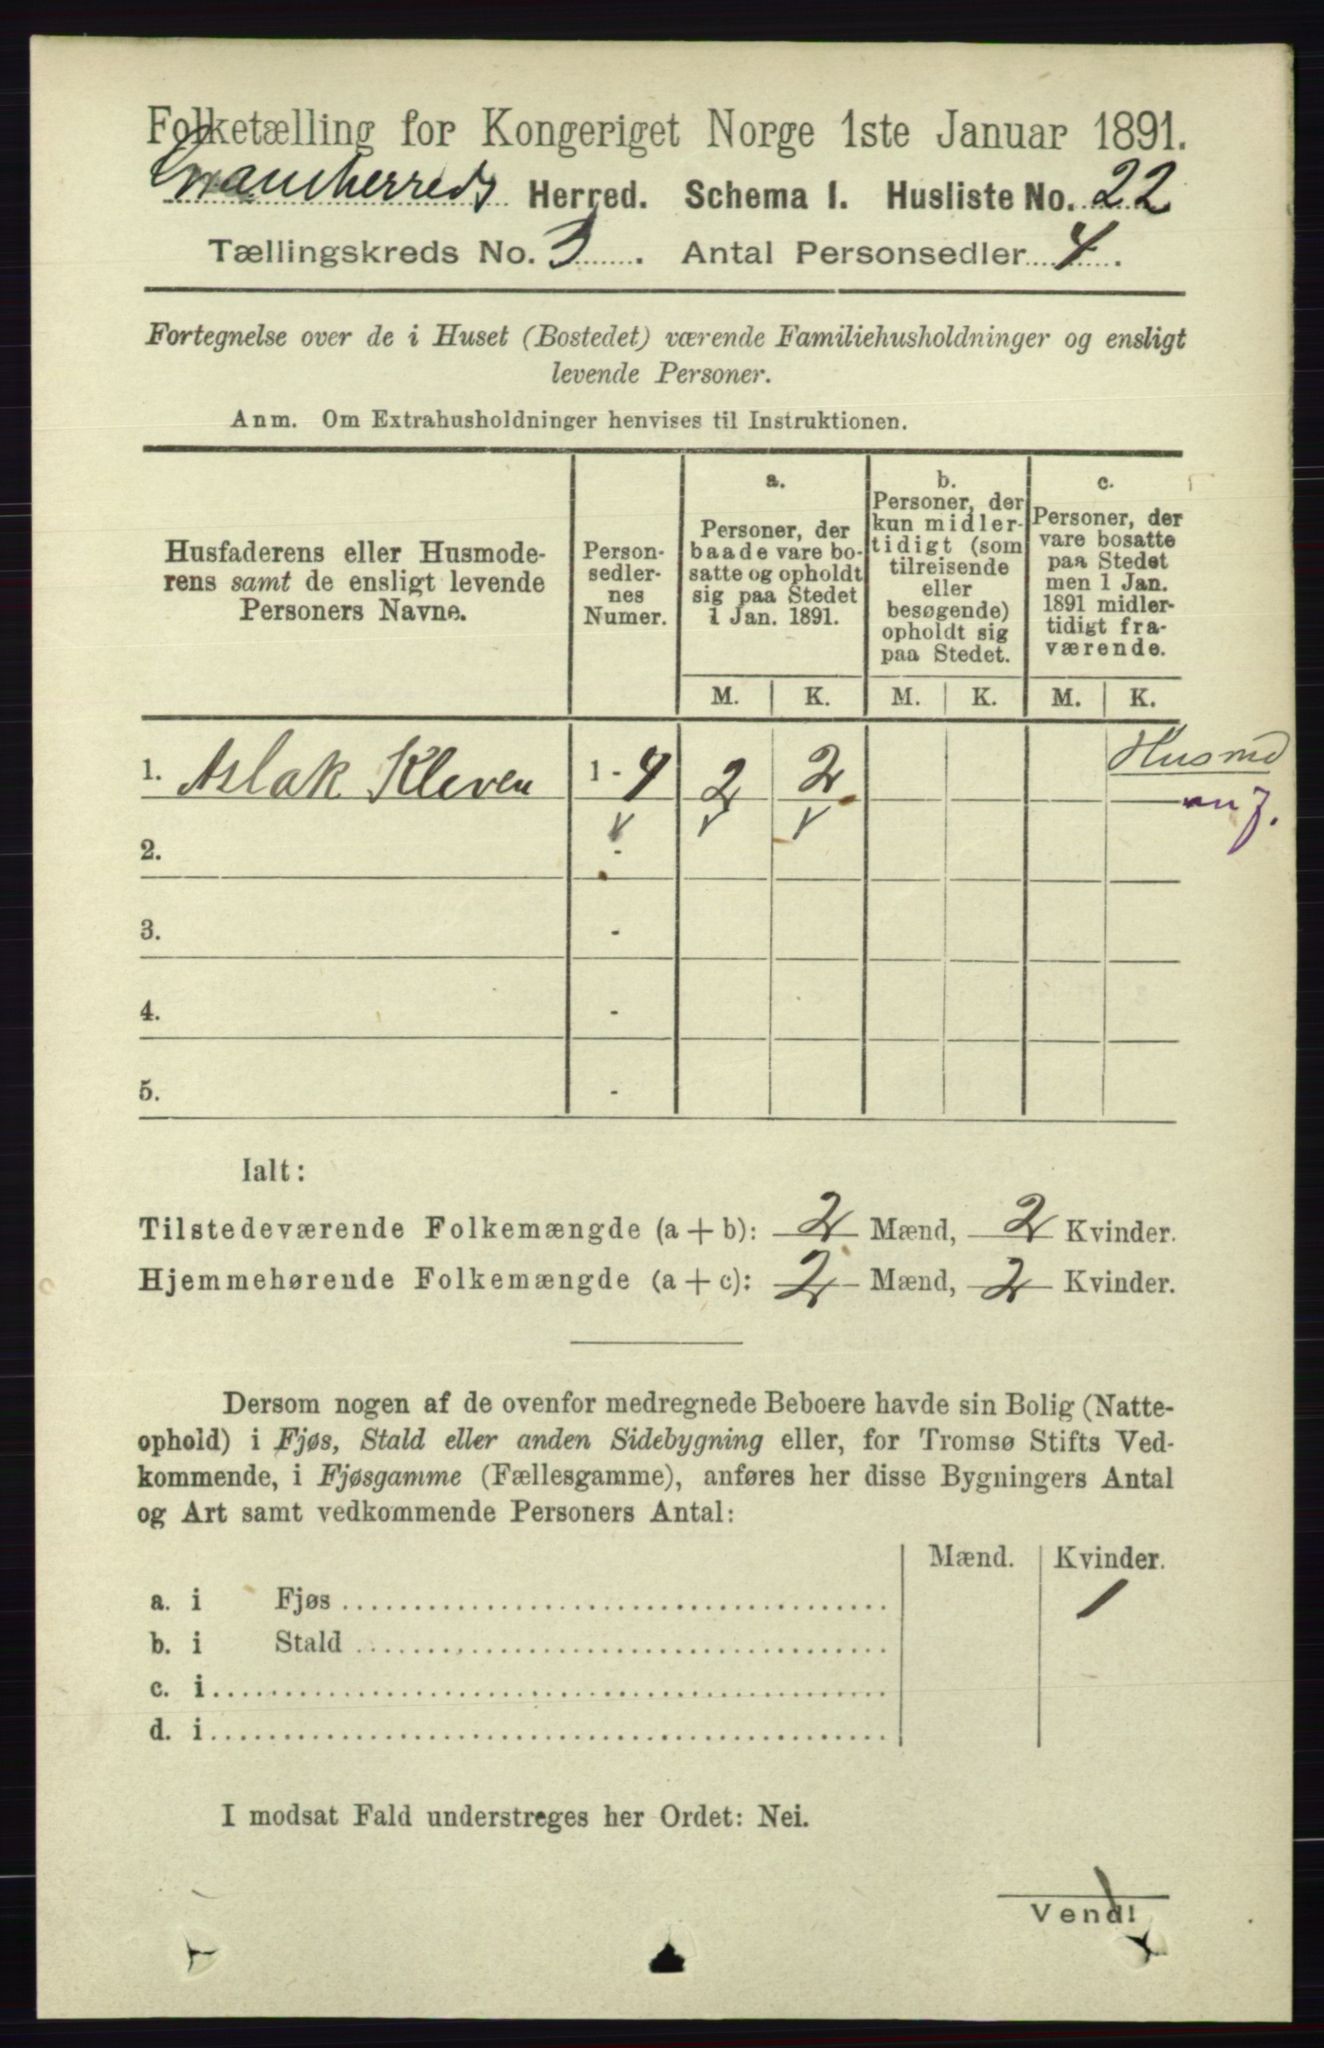 Folketælling for Kongeriget Norge 1ste Januar 1891.
Granherreds Herred. Schema I. Husliste No. 22
Tællingskreds No. 3. Antal Personsedler 4.
Fortegnelse over de i Huset (Bostedet) værende Familiehusholdninger og ensligt
levende Personer.
Anm. Om Extrahusholdninger henvises til Instruktionen.
Husfaderens eller Husmode-
rens samt de ensligt levende
Personers Navne.
Person-
sedler-
nes
Numer.
a.
Personer, der
baade vare bo-
satte og opholdt
sig paa Stedet
1 Jan. 1891.
b.
Personer, der
kun midler-
tidigt (som
tilreisende
eller
besøgende)
opholdt sig
paa Stedet.
c.
Personer, der
vare bosatte
paa Stedet
men 1 Jan.
1891 midler-
tidigt fra-
værende.
M. K. M. K. M. K.
1. Aslak Kleven 1 - 4 2 2 Husmd
m j.
2. -
3. -
4. -
5. -
Ialt:
Tilstedeværende Folkemængde (a + b): 2 Mænd, 2 Kvinder.
Hjemmehørende Folkemængde (a + c): 2 Mænd, 2 Kvinder.
Dersom nogen af de ovenfor medregnede Beboere havde sin Bolig (Natte-
ophold) i Fjøs, Stald eller anden Sidebygning eller, for Tromsø Stifts Ved-
kommende, i Fjøsgamme (Fællesgamme), anføres her disse Bygningers Antal
og Art samt vedkommende Personers Antal:
Mænd. Kvinder.
a. i Fjøs 1
b. i Stald
c. i
d. i
I modsat Fald understreges her Ordet: Nei.
Vend!